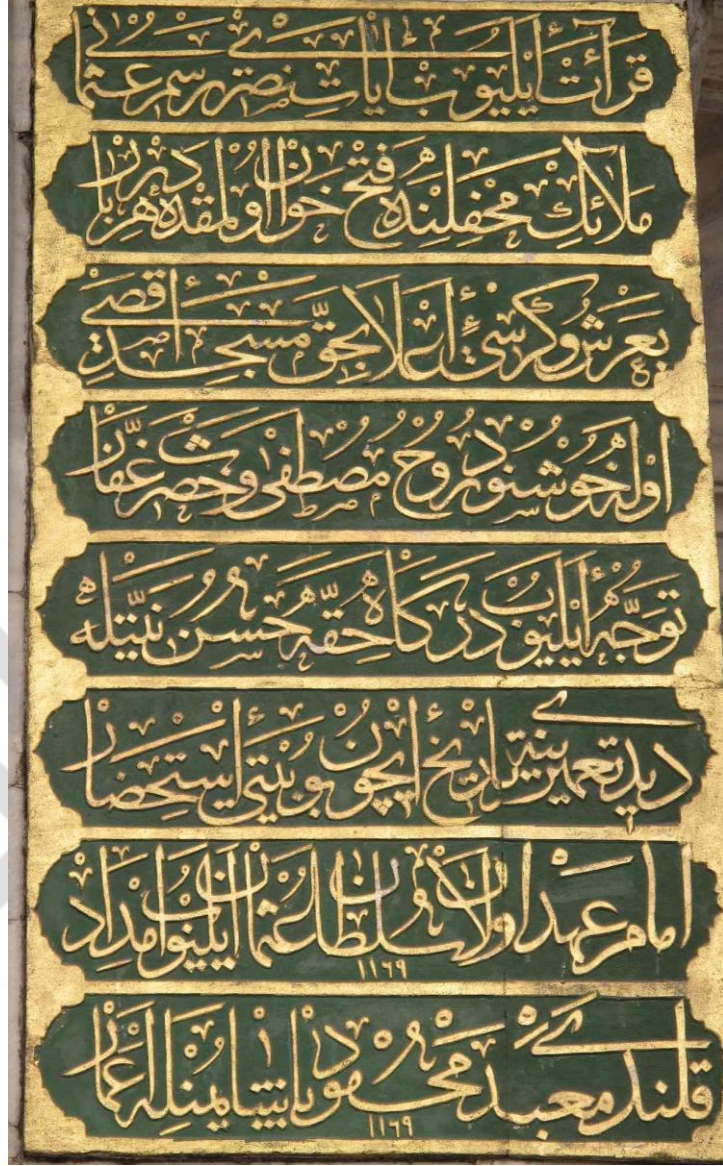 قرائت ایلیوب ایات نصری رسم عثمانی
ملائك محفلنده فتح خوان اولمقده در هربار
بعرش و كرسئ اعلا بحق مسجد اقصی
اوله خوشنود روح مصطفی و حضرت غفار
توجه ایلیوب درگاه حقه حسن نیتله
دیدی تعمیرینه تاریخ ایچون بو بیتی استحضار
امام عهد اولان سلطان عثمان ایلیوب امداد ١١٦٩
قلندی معبد محمود پاشا یمنله اعمار ١١٦٩